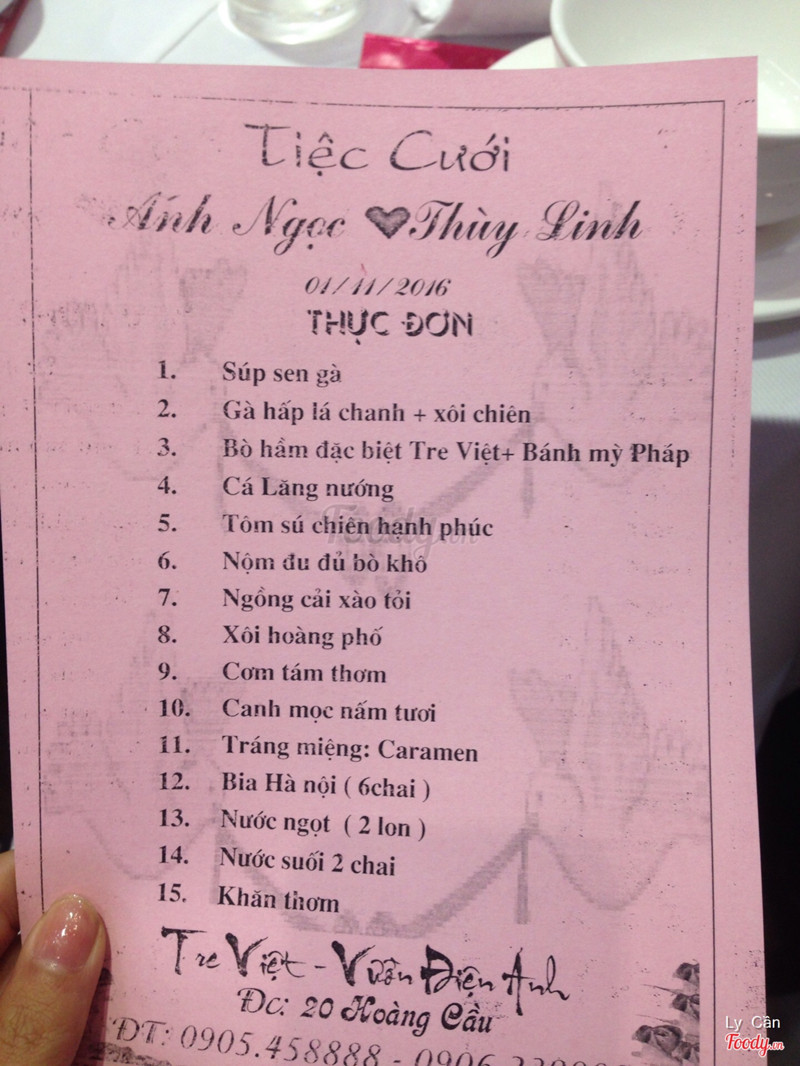 Tiệc Cưới
Ánh Ngọc ♥ Thùy Linh
01/11/2016
THỰC ĐƠN
1. Súp sen gà
2. Gà hấp lá chanh + xôi chiên
3. Bò hầm đặc biệt Tre Việt+ Bánh mỳ Pháp
4. Cá Lăng nướng
5. Tôm sú chiên hạnh phúc
6. Nộm đu đủ bò khô
7. Ngồng cải xào tỏi
8. Xôi hoàng phố
9. Cơm tám thơm
10. Canh mọc nấm tươi
11. Tráng miệng: Caramen
12. Bia Hà nội ( 6chai )
13. Nước ngọt ( 2 lon )
14. Nước suối 2 chai
15. Khăn thơm
Tre Việt - Vườn Điện Ảnh
Đc: 20 Hoàng Cầu
ĐT: 0905.458888 - 0906
Foody.vn
Ly Cần
Foody.vn